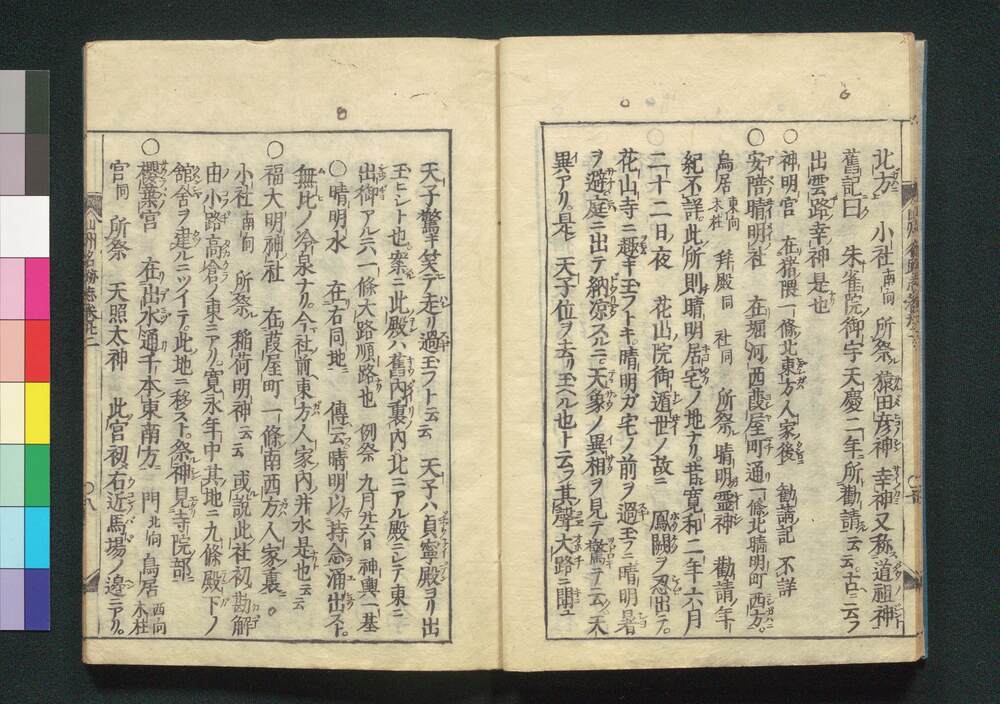 北方 小社南向 所祭 猿田彦神 幸神又称 道祖神
舊記曰 朱雀院御宇天慶二年所勸請云云古ニ云フ
出雲路幸神是也
〇神明宮 在猪隈一條北東方人家後 勸請記不詳
〇安陪晴明社 在堀河西葭屋町通一條北晴明町西方
鳥居東向木柱 拜殿同 社同 所祭 晴明霊神 勸請年
紀不詳此所則晴明居宅ノ地ナリ昔寛和二年六月
二十二日夜 花山院御遁世ノ故ニ 鳳闕ヲ忍出テ
花山寺ニ趣キ玉フトキ晴明ガ宅ノ前ヲ過玉フニ晴明暑
ヲ避庭ニ出テ納涼スルニ天象ノ異相ヲ見テ驚テ云天
異アリ是 天子位ヲ去リ玉ヘル也ト云フ其聲大路ニ聞ユ
天子驚キ笑テ走リ過玉フト云云 天子ハ貞寧殿ヨリ出
玉ヒシト也案ニ此殿ハ舊内裏内北ニアル殿ニシテ東ニ
出御アル六一條大路順路也 例祭 九月廿六日 神輿一基
〇晴明水 在右同地ニ 傳云晴明以持念涌出ス
無比ノ冷泉ナリ今社前東方人家内井水是也云云
〇福大明神社 在葭屋町一條南西方人家裏
小社南向 所祭 稲荷明神云云 或説此社初勘解
由小路高倉ノ東ニアリ寛永年中其地ニ九條殿下ノ
館舎ヲ建ルニツイテ此地ニ移ス祭神見寺院部ニ
〇櫻葉宮 在出水通千本東南方ニ 門北向 鳥居西向木柱
宮同 所祭 天照太神 此宮初右近馬場ノ邊ニアリ
山州名跡志卷廿二
〇八